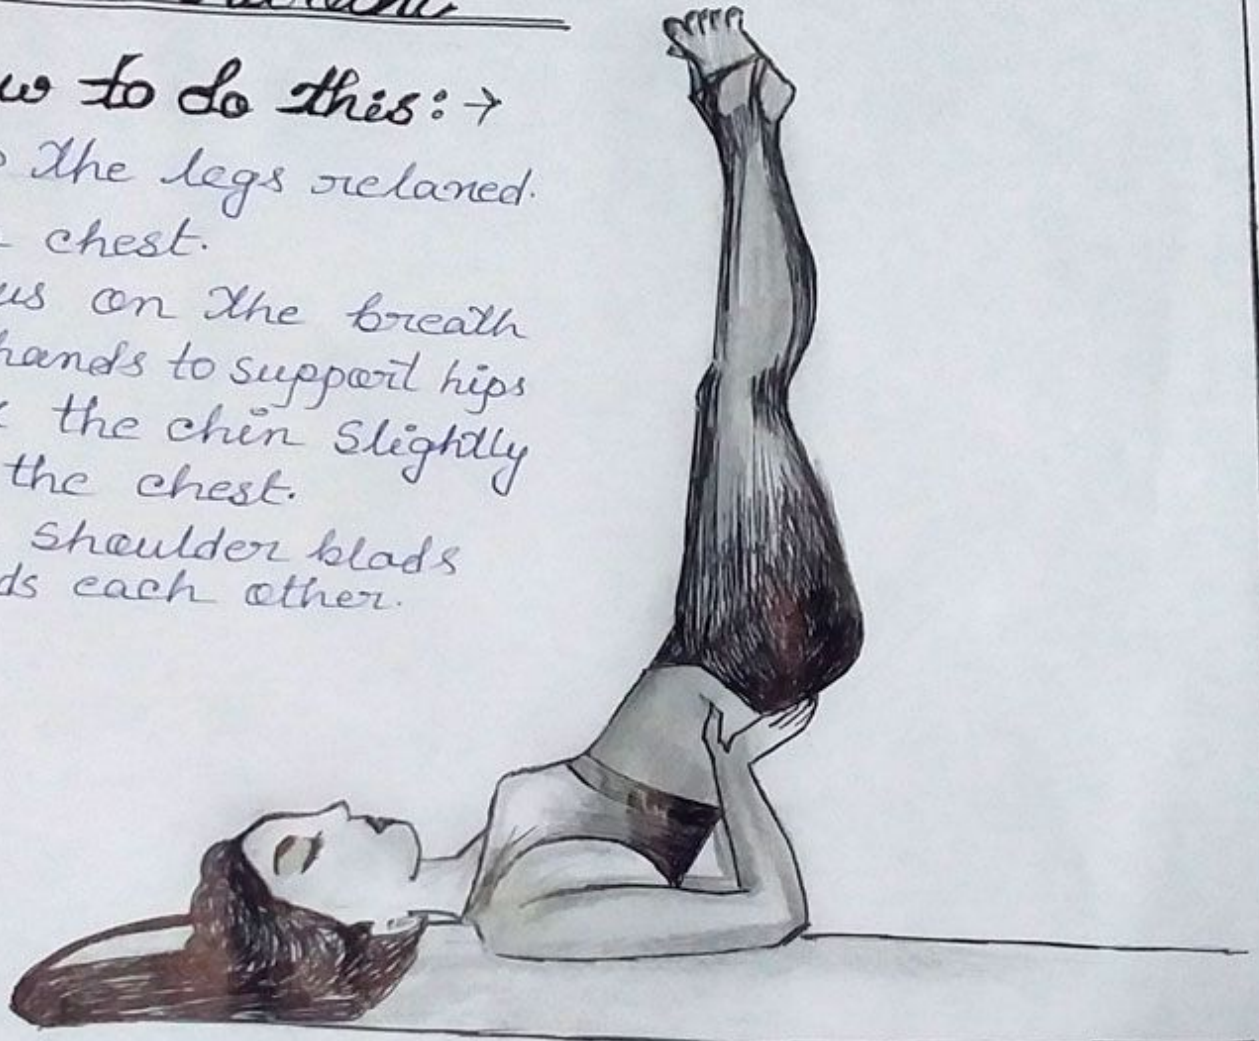 to do this:→
the legs relaxed.
chest.
on the breath
hands to support hips
the chin slightly
the chest.
shoulder blads
each other.